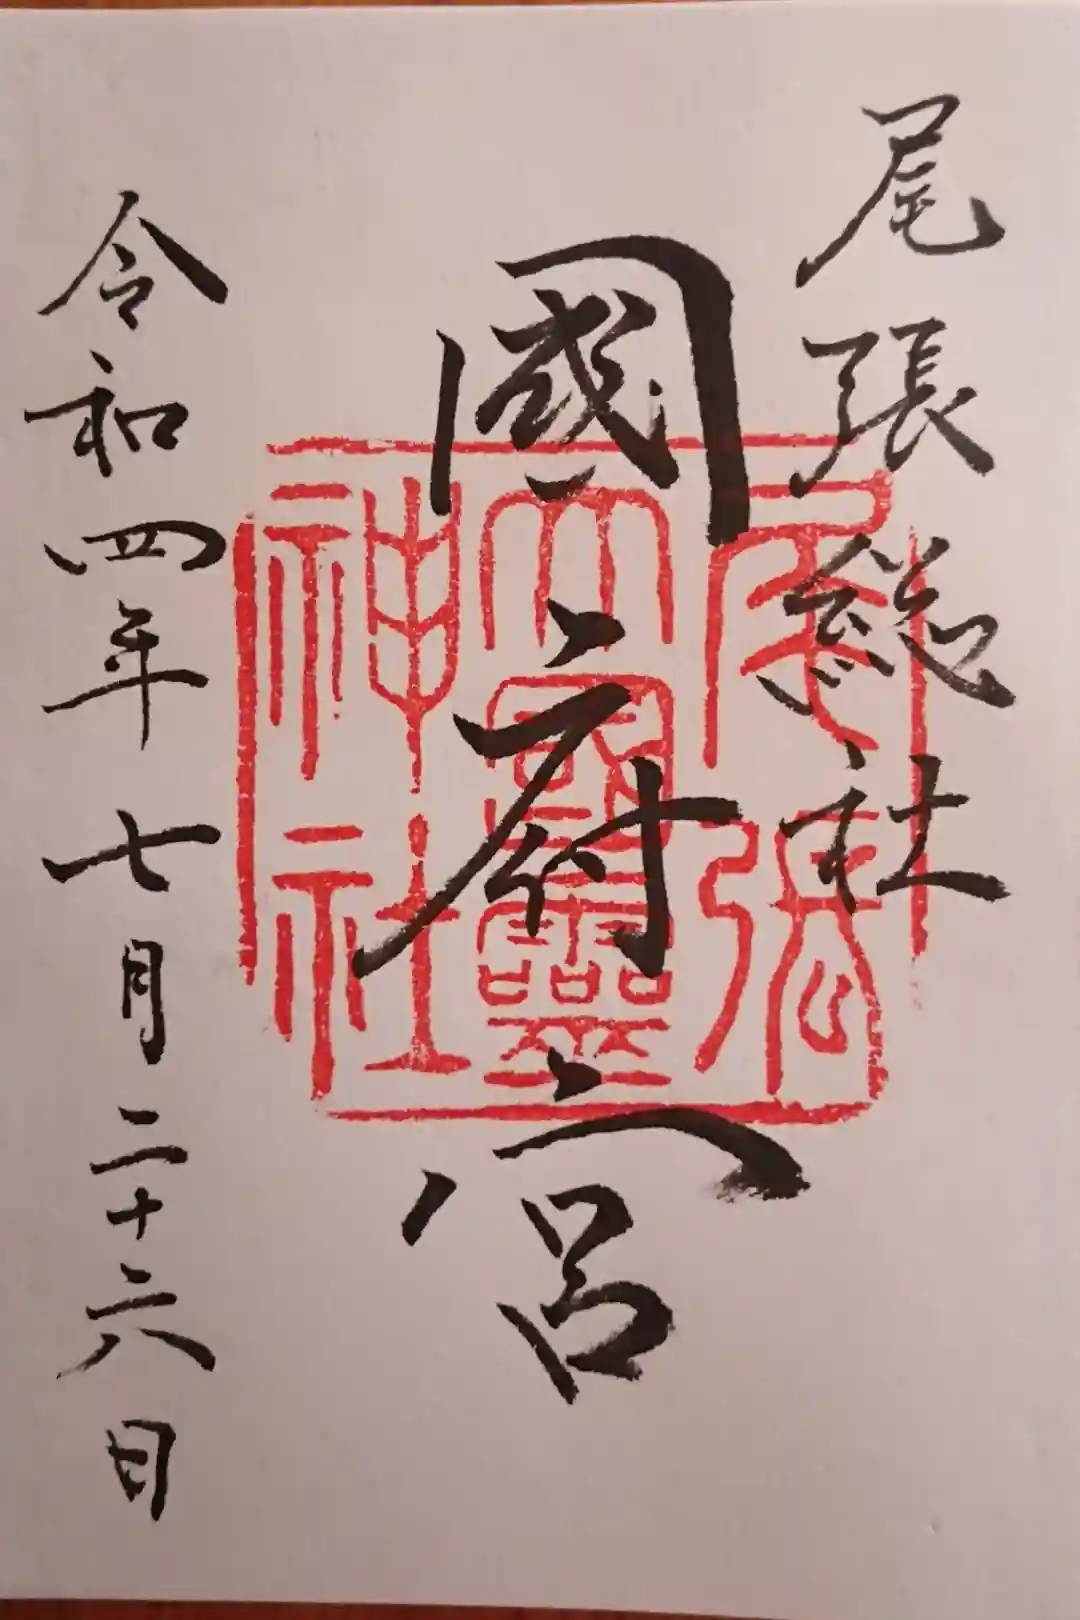 尾張総社
國府宮
令和四年七月二十六日
尾張
大國霊
神社